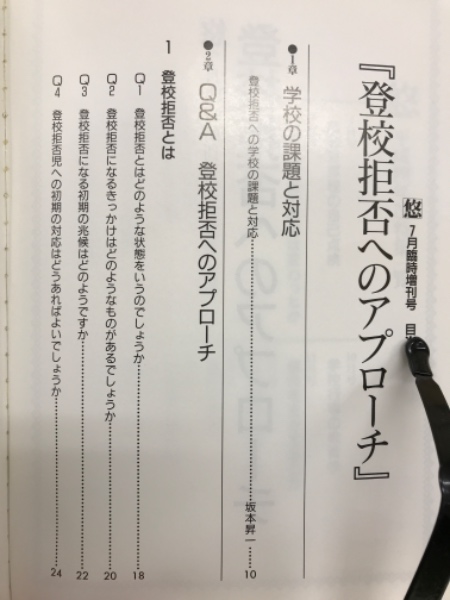 悠 7月臨時増刊号 目次
『登校拒否へのアプローチ』
●1章 学校の課題と対応
登校拒否への学校の課題と対応……坂本昇一……10
●2章 Q&A 登校拒否へのアプローチ
1 登校拒否とは
Q1 登校拒否とはどのような状態をいうのでしょうか……18
Q2 登校拒否になるきっかけはどのようなものがあるでしょうか……20
Q3 登校拒否になる初期の兆候はどのようですか……22
Q4 登校拒否児への初期の対応はどうあればよいでしょうか……24